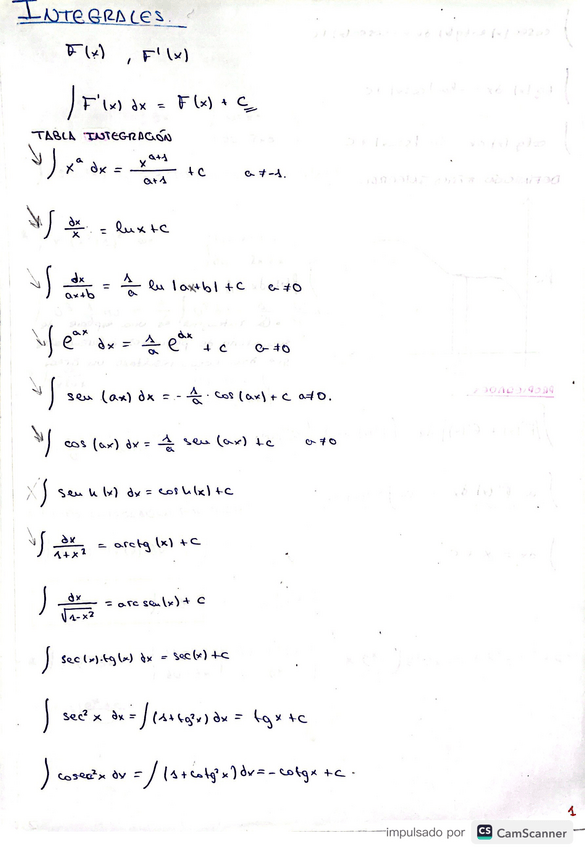 INTEGRALES.
F(x) , F'(x)
∫ F'(x) dx = F(x) + C
TABLA INTEGRACIÓN
∫ x^a dx = x^(a+1)/(a+1) + c a ≠ -1.
∫ dx/x = ln x + c
∫ dx/(ax+b) = 1/a ln |ax+b| + c a ≠ 0
∫ e^(ax) dx = 1/a e^(ax) + c a ≠ 0
∫ sen (ax) dx = - 1/a · cos (ax) + c a ≠ 0.
∫ cos (ax) dx = 1/a sen (ax) + c a ≠ 0
∫ sen h (x) dx = cos h (x) + c
∫ dx/(1+x²) = arctg (x) + c
∫ dx/√(1-x²) = arc sen (x) + c
∫ sec (x)·tg (x) dx = sec (x) + c
∫ sec² x dx = ∫ (1+tg² x) dx = tg x + c
∫ cosec² x dv = ∫ (1+cotg² x) dv = - cotg x + c.
1
impulsado por CS CamScanner